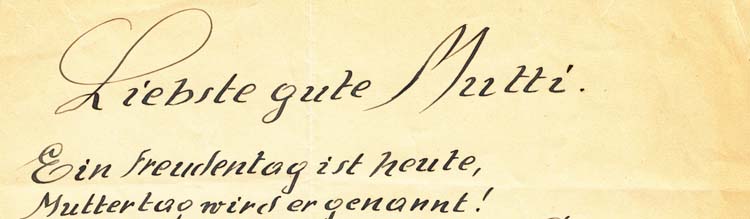 Liebste gute Mutti.
Ein Freudentag ist heute,
Muttertag wird er genannt!